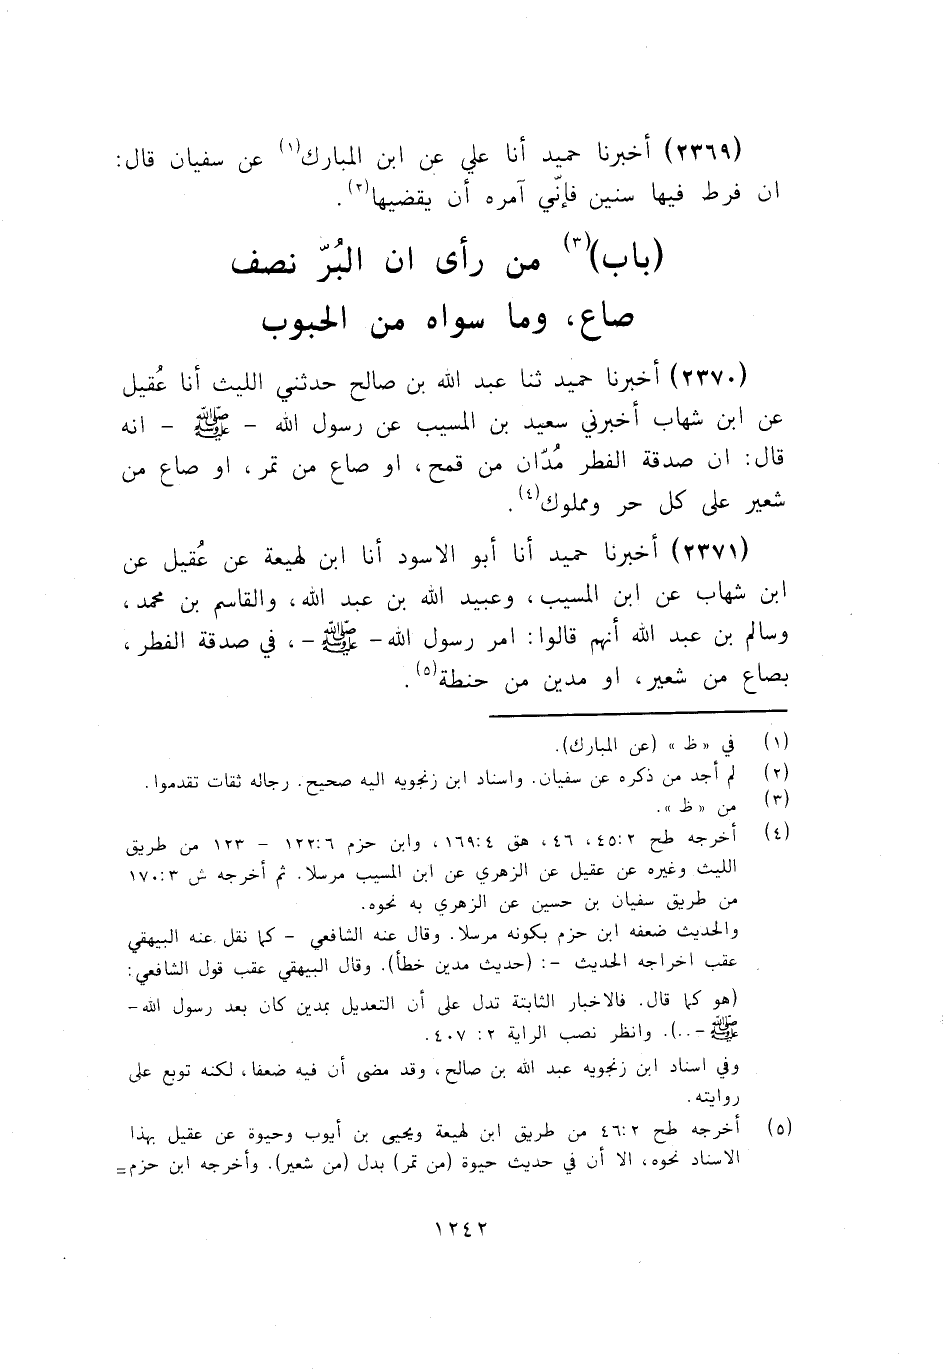 (٢٣٦٩) أخبرنا حميد أنا علي عن ابن المبارك(١) عن سفيان قال:
ان فرط فيها سنين فإنّي آمره أن يقضيها(٢).
(باب)(٣) من رأى ان البُرّ نصف
صاع، وما سواه من الحبوب
(٢٣٧٠) أخبرنا حميد ثنا عبد الله بن صالح حدثني الليث أنا عُقيل
عن ابن شهاب أخبرني سعيد بن المسيب عن رسول الله - ﷺ - انه
قال: ان صدقة الفطر مُدّان من قمح، او صاع من تمر، او صاع من
شعير على كل حر ومملوك(٤).
(٢٣٧١) أخبرنا حميد أنا أبو الاسود أنا ابن لهيعة عن عُقيل عن
ابن شهاب عن ابن المسيب، وعبيد الله بن عبد الله، والقاسم بن محمد،
وسالم بن عبد الله أنهم قالوا: امر رسول الله - ﷺ -، في صدقة الفطر،
بصاع من شعير، او مدين من حنطة(٥).
(١) في «ظ» (عن المبارك).
(٢) لم أجد من ذكره عن سفيان. واسناد ابن زنجويه اليه صحيح. رجاله ثقات تقدموا.
(٣) من «ظ».
(٤) أخرجه طح ٢: ٤٥، ٤٦، هق ٤: ١٦٩، وابن حزم ٦: ١٢٢ - ١٢٣ من طريق
الليث وغيره عن عقيل عن الزهري عن ابن المسيب مرسلا. ثم أخرجه ش ٣: ١٧٠
من طريق سفيان بن حسين عن الزهري به نحوه.
والحديث ضعفه ابن حزم بكونه مرسلا. وقال عنه الشافعي - كما نقل عنه البيهقي
عقب اخراجه الحديث -: (حديث مدين خطأ). وقال البيهقي عقب قول الشافعي:
(هو كما قال. فالاخبار الثابتة تدل على أن التعديل بمدين كان بعد رسول الله -
ﷺ -..). وانظر نصب الراية ٢: ٤٠٧.
وفي اسناد ابن زنجويه عبد الله بن صالح، وقد مضى أن فيه ضعفا، لكنه توبع على
روايته.
(٥) أخرجه طح ٢: ٤٦ من طريق ابن لهيعة ويحيى بن أيوب وحيوة عن عقيل بهذا
الاسناد نحوه، الا أن في حديث حيوة (من تمر) بدل (من شعير). وأخرجه ابن حزم=
١٢٤٢